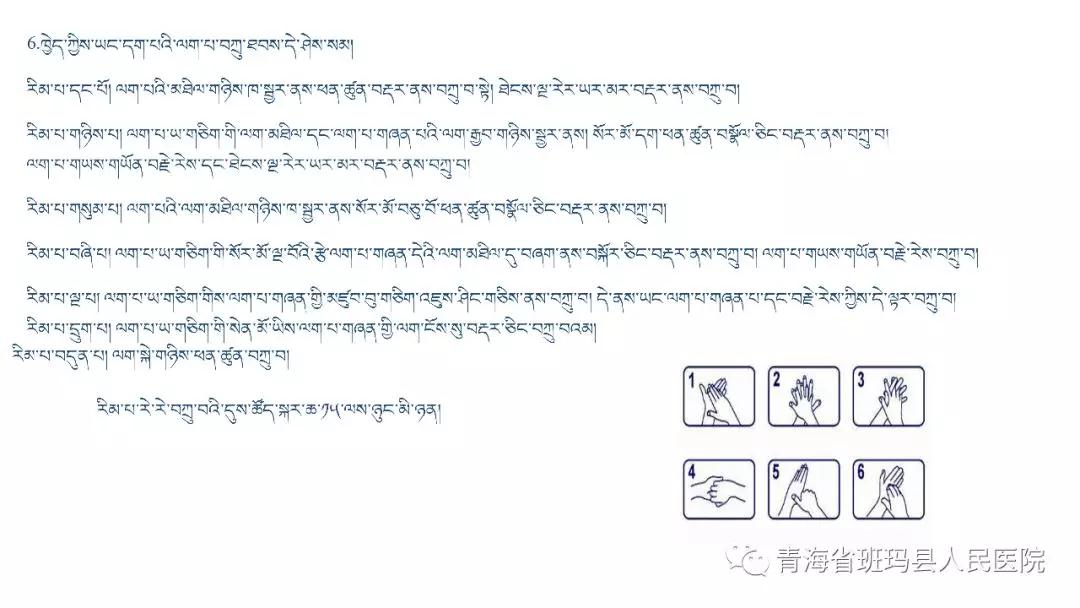 6.ཁྱེད་ཀྱིས་ཡང་དག་པའི་ལག་པ་བཀྲུ་ཐབས་དེ་ཤེས་སམ།
རིམ་པ་དང་པོ། ལག་པའི་མཐིལ་གཉིས་ཁ་སྦྱར་ནས་ཕན་ཚུན་བརྡར་ནས་བཀྲུ་བ་སྟེ། ཐེངས་ལྔ་རེར་ཡར་མར་བརྡར་ནས་བཀྲུ་བ།
རིམ་པ་གཉིས་པ། ལག་པ་ཡ་གཅིག་གི་ལག་མཐིལ་དང་ལག་པ་གཞན་པའི་ལག་རྒྱབ་གཉིས་སྦྱར་ནས། སོར་མོ་དག་ཕན་ཚུན་བསྣོལ་ཅིང་བརྡར་ནས་བཀྲུ་བ།
ལག་པ་གཡས་གཡོན་བརྗེ་རེས་དང་ཐེངས་ལྔ་རེར་ཡར་མར་བརྡར་ནས་བཀྲུ་བ།
རིམ་པ་གསུམ་པ། ལག་པའི་ལག་མཐིལ་གཉིས་ཁ་སྦྱར་ནས་སོར་མོ་བཅུ་བོ་ཕན་ཚུན་བསྣོལ་ཅིང་བརྡར་ནས་བཀྲུ་བ།
རིམ་པ་བཞི་པ། ལག་པ་ཡ་གཅིག་གི་སོར་མོ་ལྔ་བོའི་རྩེ་ལག་པ་གཞན་དེའི་ལག་མཐིལ་དུ་བཞག་ནས་བསྐོར་ཅིང་བརྡར་ནས་བཀྲུ་བ། ལག་པ་གཡས་གཡོན་བརྗེ་རེས་བཀྲུ་བ།
རིམ་པ་ལྔ་པ། ལག་པ་ཡ་གཅིག་གིས་ལག་པ་གཞན་གྱི་མཛུབ་བུ་གཅིག་འཇུས་ཤིང་གཅིས་ནས་བཀྲུ་བ། དེ་ནས་ཡང་ལག་པ་གཞན་པ་དང་བརྗེ་རེས་ཀྱིས་དེ་ལྟར་བཀྲུ་བ།
རིམ་པ་དྲུག་པ། ལག་པ་ཡ་གཅིག་གི་སེན་མོ་ཡིས་ལག་པ་གཞན་གྱི་ལག་ངོས་སུ་བརྡར་ཅིང་བཀྲུ་བའམ།
རིམ་པ་བདུན་པ། ལག་སྐེ་གཉིས་ཕན་ཚུན་བཀྲུ་བ།
རིམ་པ་རེ་རེ་བཀྲུ་བའི་དུས་ཚོད་སྐར་ཆ་༡༥་ལས་ཉུང་མི་ཉན།
1 2 3
4 5 6
青海省班玛县人民医院